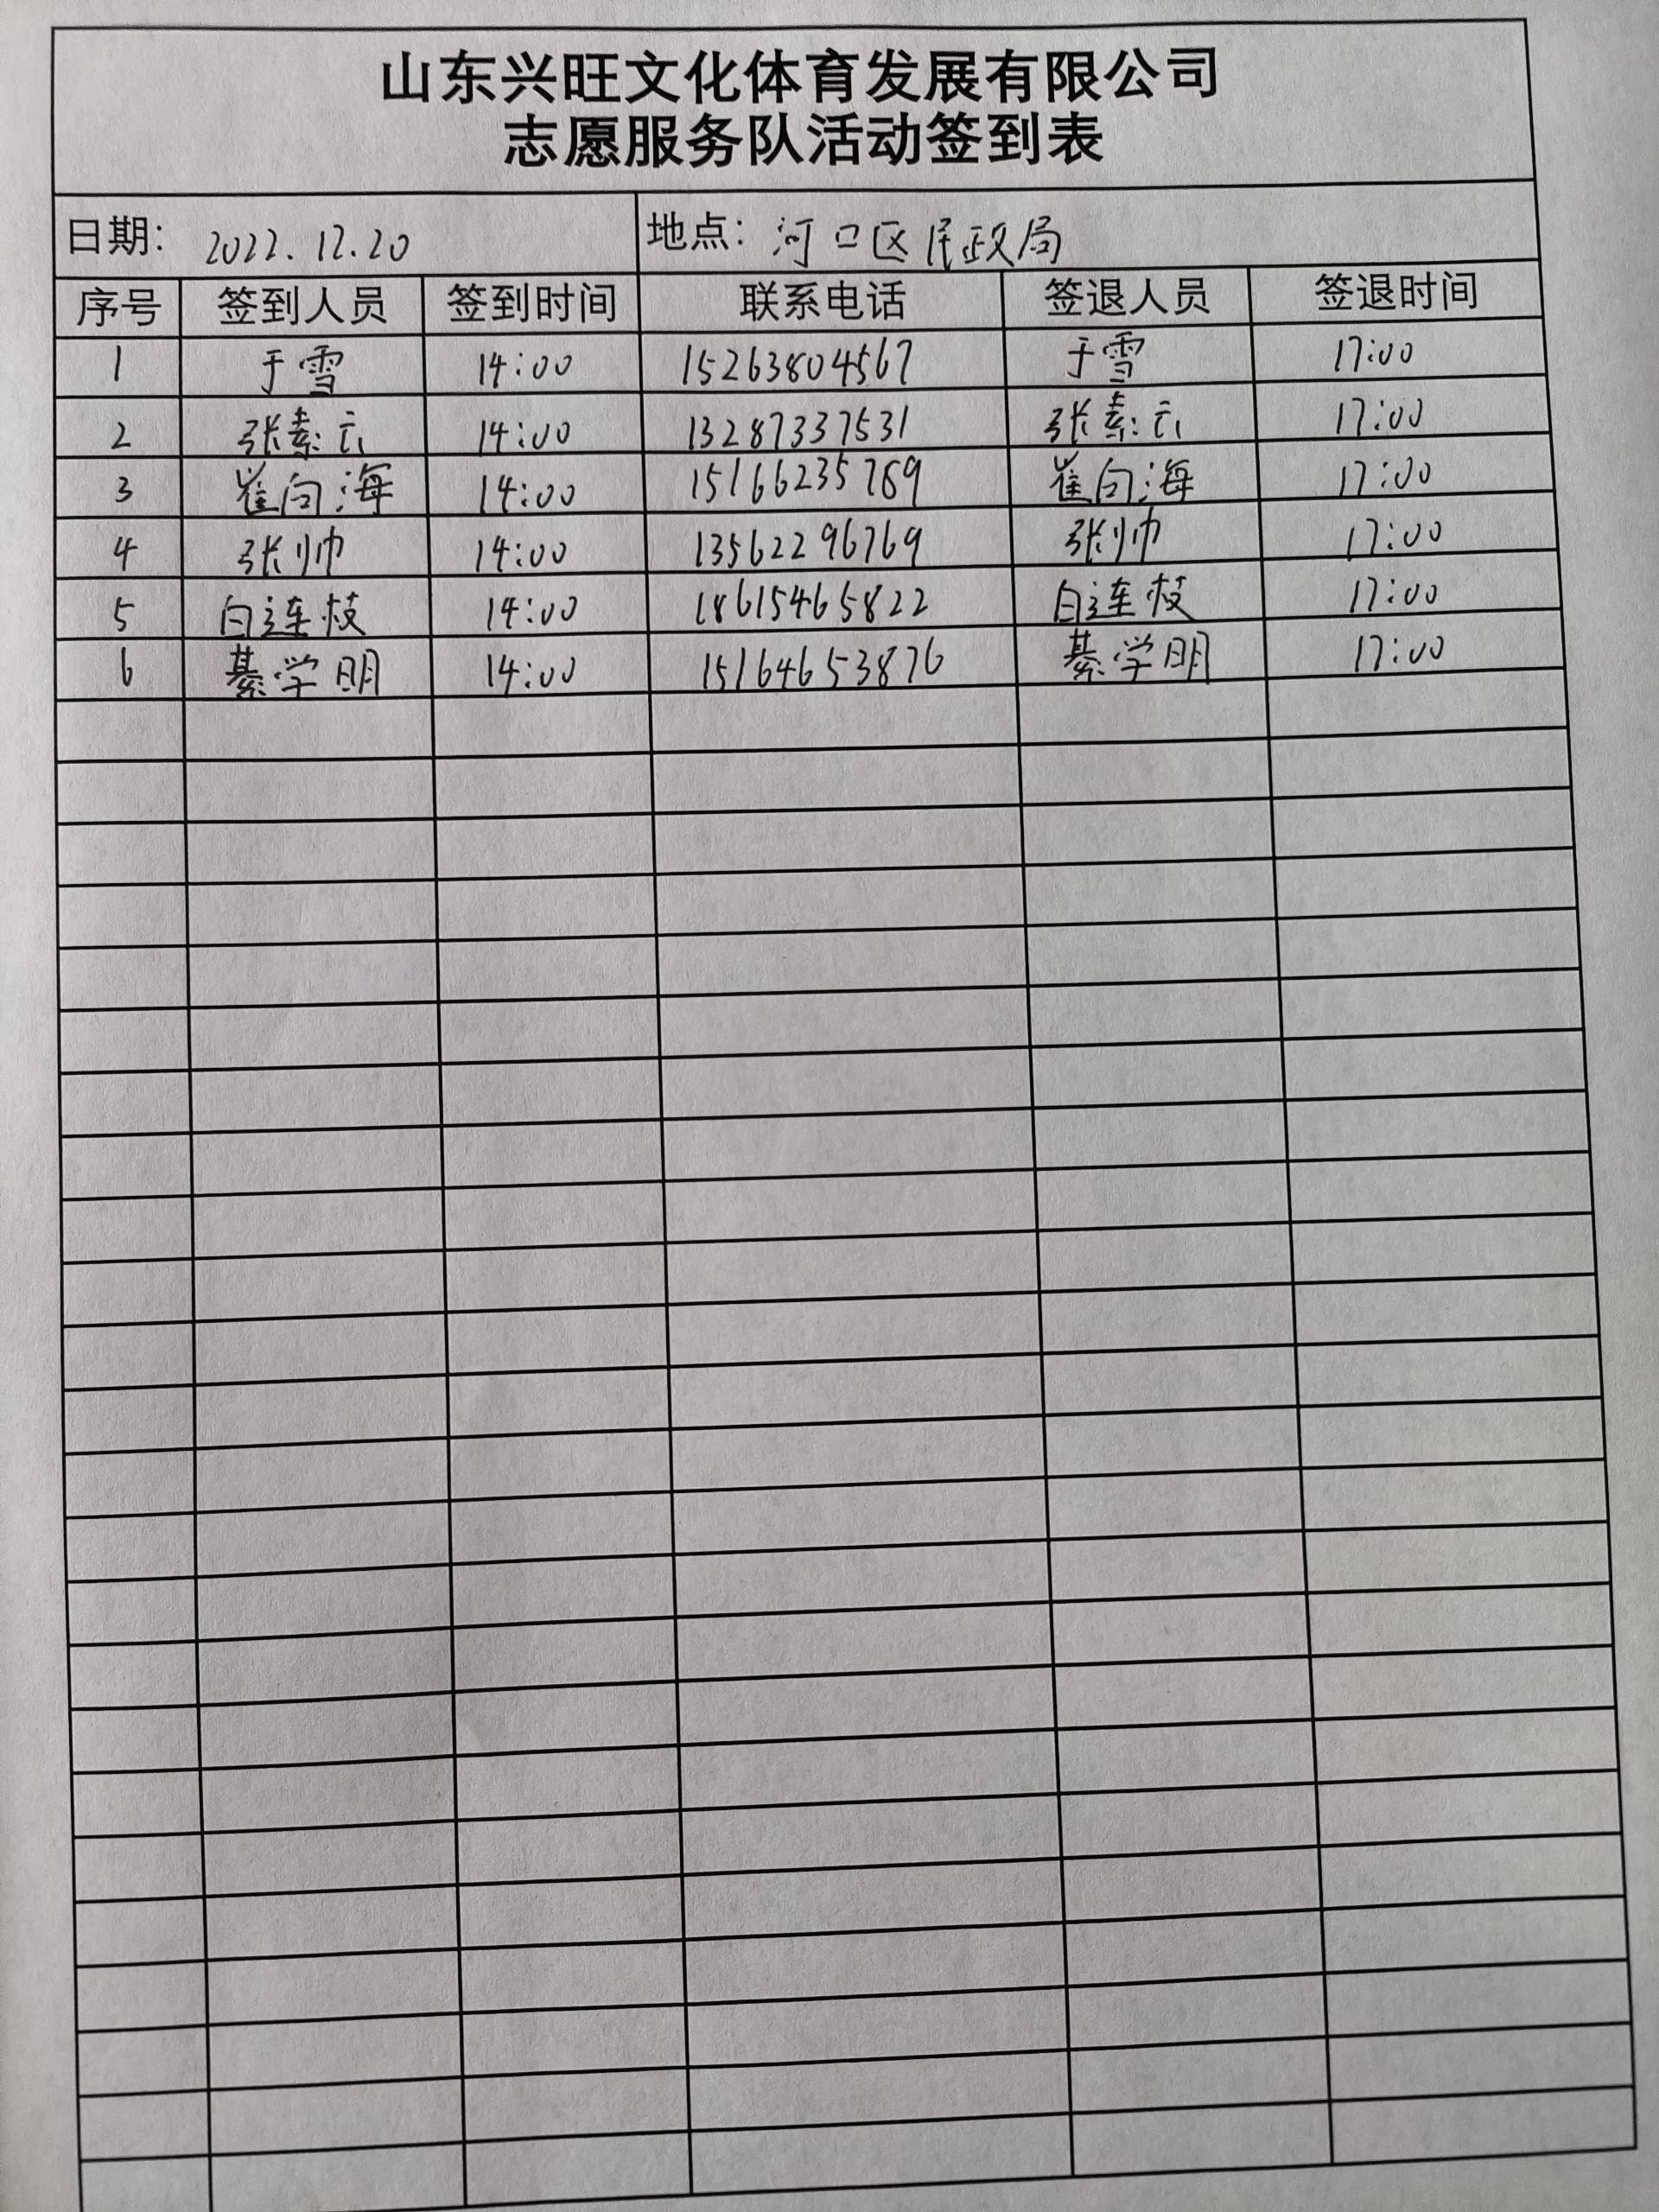 山东兴旺文化体育发展有限公司
志愿服务队活动签到表
日期： 2022.12.20 地点： 河口区民政局
序号 签到人员 签到时间 联系电话 签退人员 签退时间
1 于雪 14:00 15263804567 于雪 17:00
2 张素云 14:00 13287337531 张素云 17:00
3 崔向海 14:00 15166235789 崔向海 17:00
4 张帅 14:00 13562296769 张帅 17:00
5 白连枝 14:00 18615465822 白连枝 17:00
6 綦学明 14:00 15164653876 綦学明 17:00